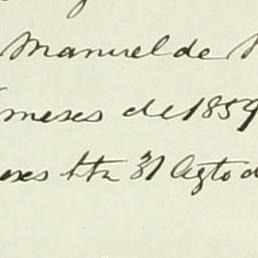 Manuel de
meses de 1859
hta 31 Agto d